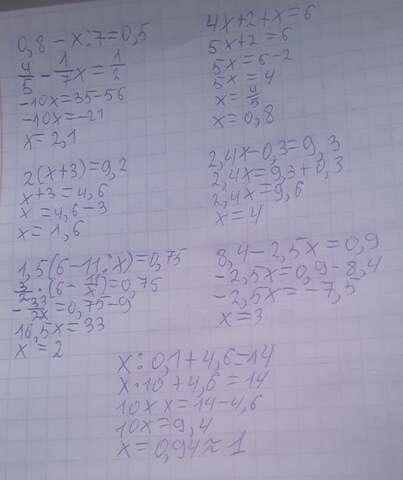 0,8 - x:7=0,5
4/5 - 1/7x = 1/2
-10x=35-56
-10x=-21
x=2,1
2(x+3)=9,2
x+3=4,6
x=4,6-3
x=1,6
1,5(6-11:x)=0,75
3/2·(6-11/x)=0,75
-33/2x=0,75-9
16,5x=33
x=2
4x+2+x=6
5x+2=6
5x=6-2
5x=4
x=4/5
x=0,8
2,4x-0,3=9,3
2,4x=9,3+0,3
2,4x=9,6
x=4
8,4-2,5x=0,9
-2,5x=0,9-8,4
-2,5x=-7,5
x=3
x:0,1+4,6=14
x·10+4,6=14
10xx=14-4,6
10x=9,4
x=0,94≈1